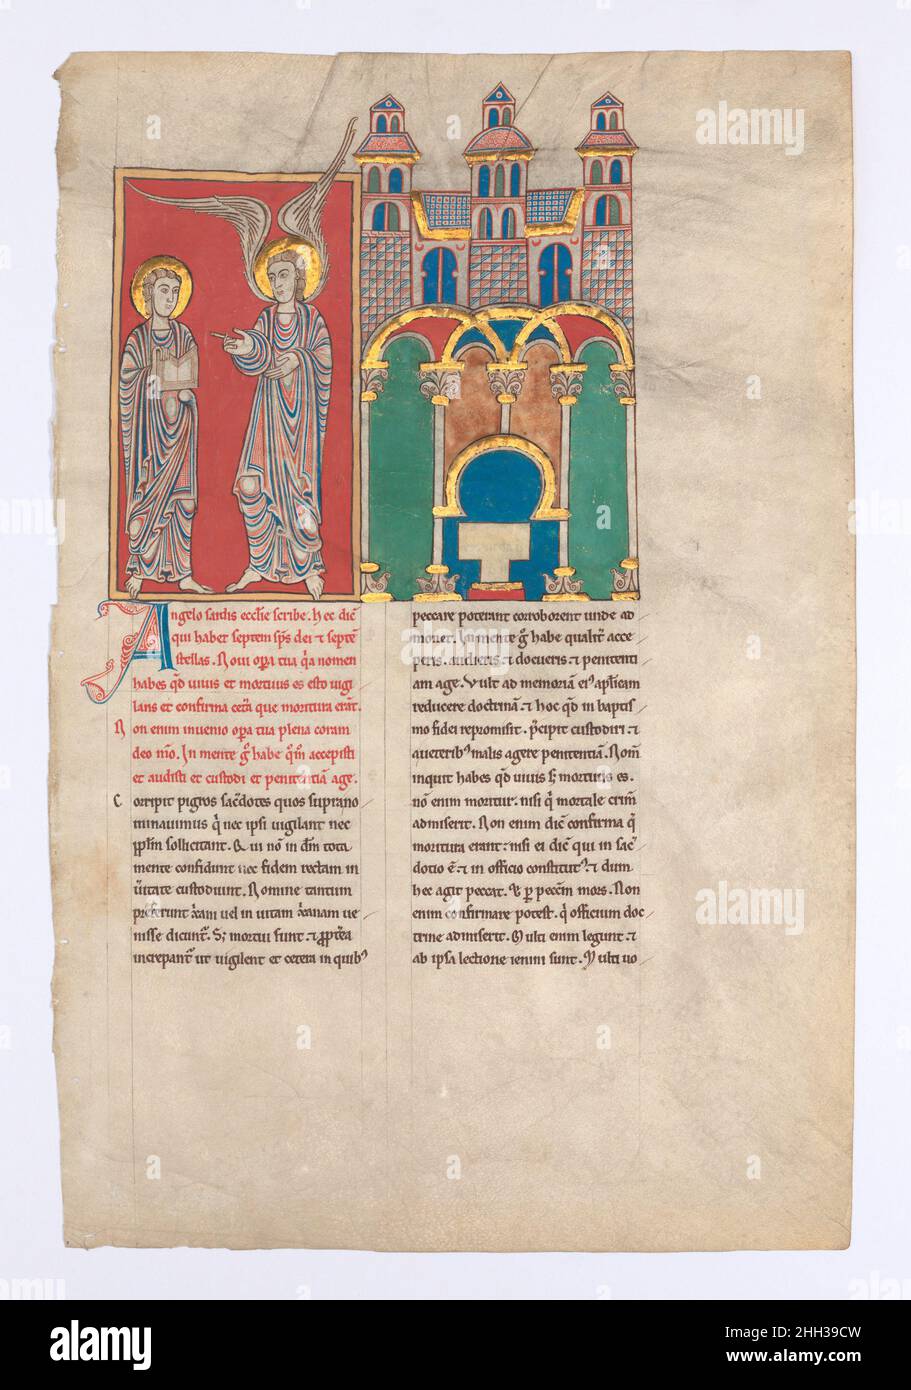 Angelo sardis ecclie scribe. Hec dic̄
qui habet septem sps dei ⁊ septē
stellas. Noui opa tua qa nomen
habes qd uiuis et mortuus es esto uigi
lans et confirma cetera que moritura erant.
Non enim inuenio opa tua plena coram
deo meo. In mente g̊ habe qm̄ accepisti
et audisti et custodi et penitentiā age.
Corripit pigros sac̄dotes quos suprano
minauimus q nec ipsi uigilant nec
Qui nō in dm̄ tota
mente confidunt nec fidem rectam in
ū̄itate custodiunt. Nomine tantum
xanam ue
nisse dicunt̄. S; mortui sunt ⁊
increpant̄ ut uigilent et cetera in quibꝰ
peccare poterant corroborent unde ad
mouet. In mente g̊ habe acce
peris. audieris ⁊ docueris ⁊ penitenti
am age. Vult ad memoriā eiꝰ aplicam
reducere doctrinā ⁊ hoc qd in baptis
mo fidei repromisit. p̄cipit custodiri ⁊
a ueteribꝰ malis agere penitentiā. Nom̄
inquit habes qd uiuis s; mortuus es.
nō enim moritur. nisi q̄ mortale crim̄
admiserit. Non enim dic̄ confirma q̄
moritura erant: nisi ei dic̄ qui in sac̄
dotio ē ⁊ in officio constitutꝰ ⁊ dum
hec agit peccat. mors. Non
enim confirmare potest. q̄ officium doc
trine admiserit. Multi enim legunt ⁊
ab ipsa lectione ieiuni sunt. Multi uo
alamy
Image ID: 2HH39CW
www.alamy.com